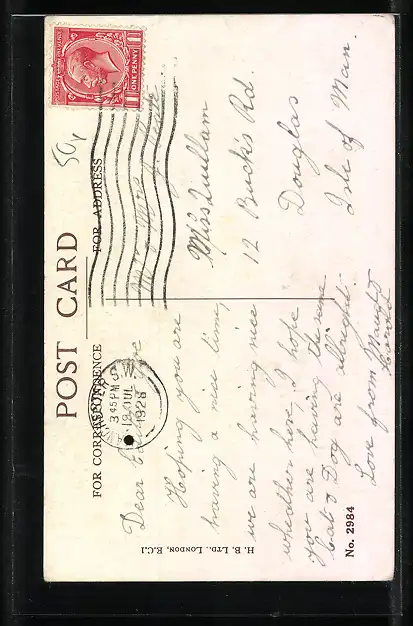 POST CARD
FOR CORRESPONDENCE
FOR ADDRESS
POSTAGE
ONE PENNY
3 45 PM
19 JUL
1926
Dear
Hoping you are
having a nice time,
we are having nice
whether here. I hope
you are having the same
Cat & Dog are allright.
Love from
Miss Quillam
12 Bucks Rd.
Douglas
Isle of Man.
H. B. LTD., LONDON, E.C.1
No. 2984